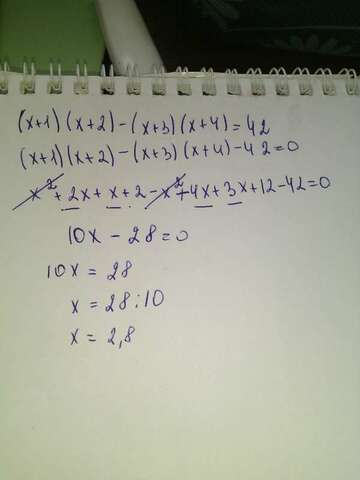 (x+1)(x+2)-(x+3)(x+4)=42
(x+1)(x+2)-(x+3)(x+4)-42=0
x²+2x+x+2-x²+4x+3x+12-42=0
10x-28=0
10x=28
x=28:10
x=2,8